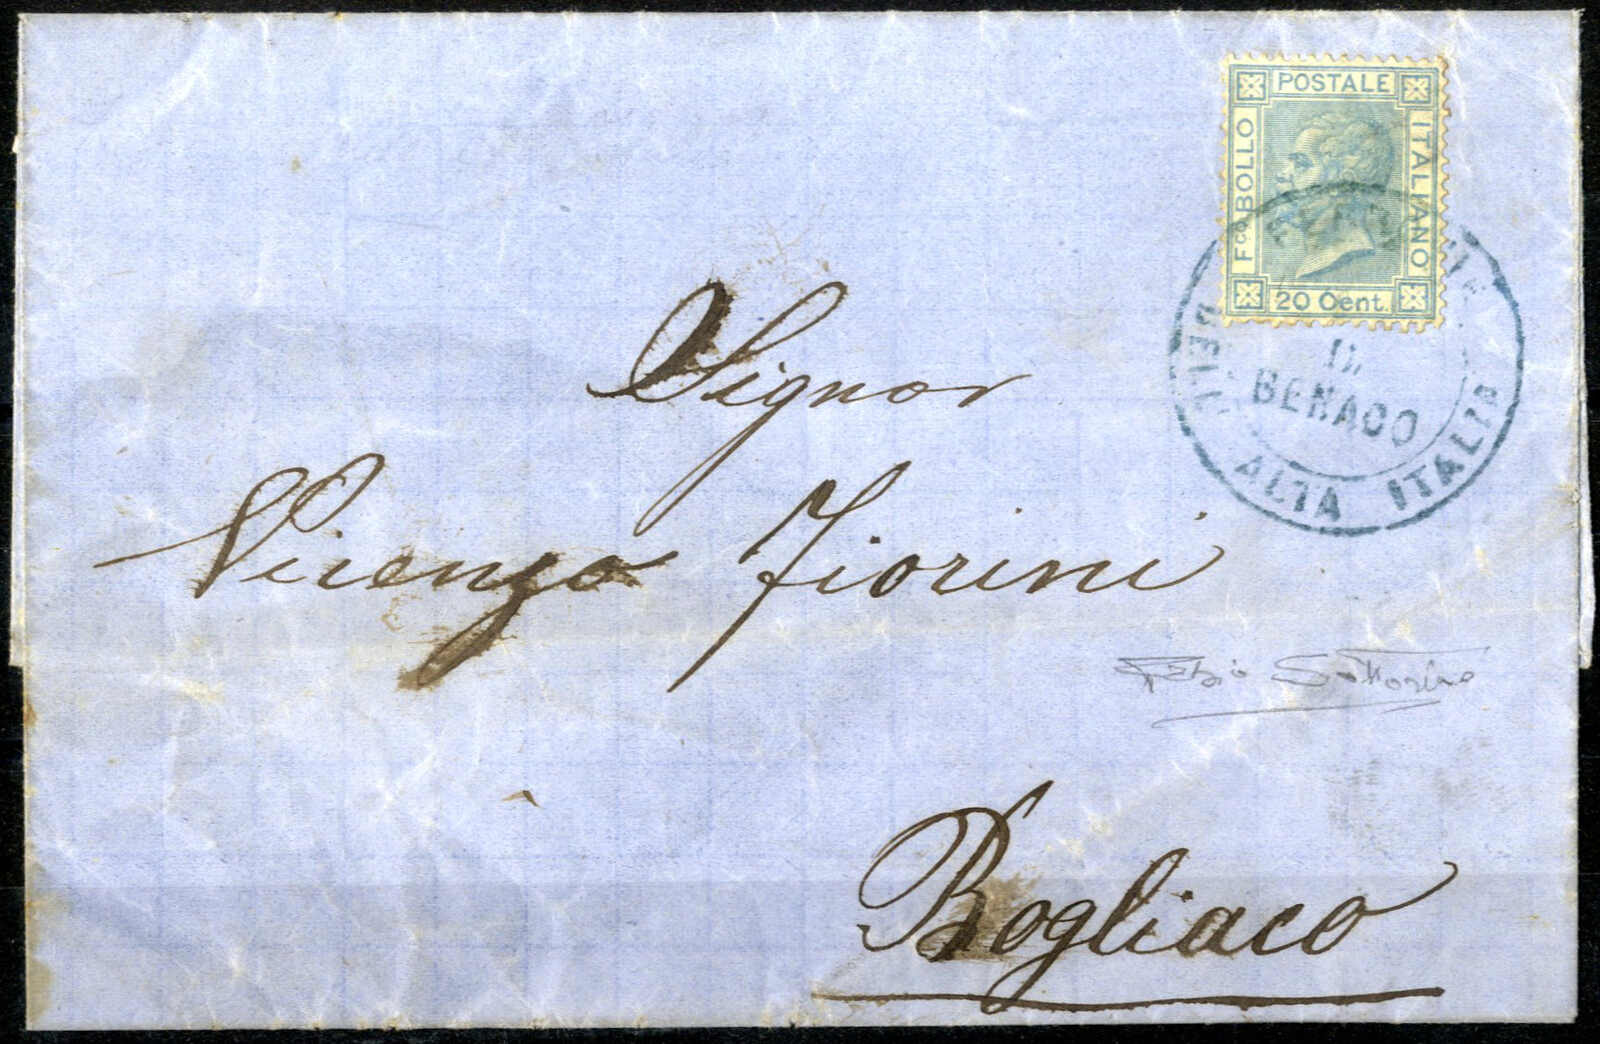 POSTALE
Fco BOLLO
ITALIANO
20 Cent.
IL
BENACO
DELL'
ALTA ITALIA
Signor
Vicenzo Fiorini
Bogliaco